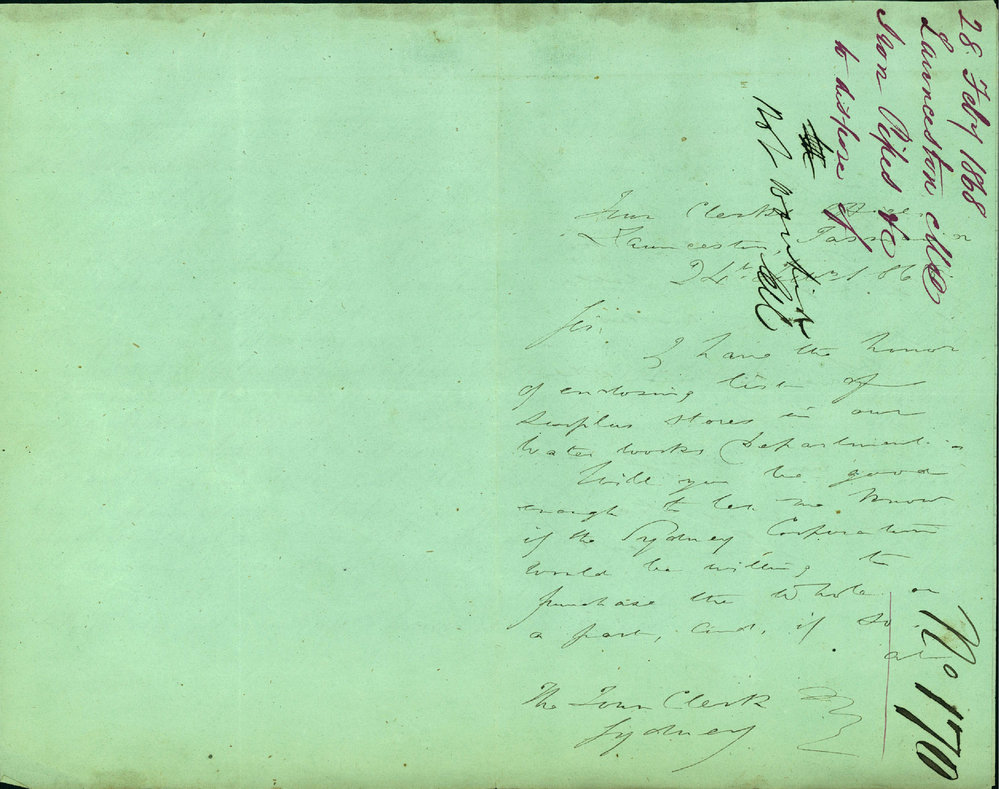 28 Feby 1868
Launceston
Iron Pipes &c
to dispose of
Not required
No 170
Town Clerk's Office
Launceston, Tasmania
24th 186
Sir,
I have the honor
of enclosing list of
surplus stores in our
Water Works Department.
Will you be good
enough to let me know
if the Sydney Corporation
would be willing to
purchase the whole or
a part, and, if so,
at
The Town Clerk
Sydney